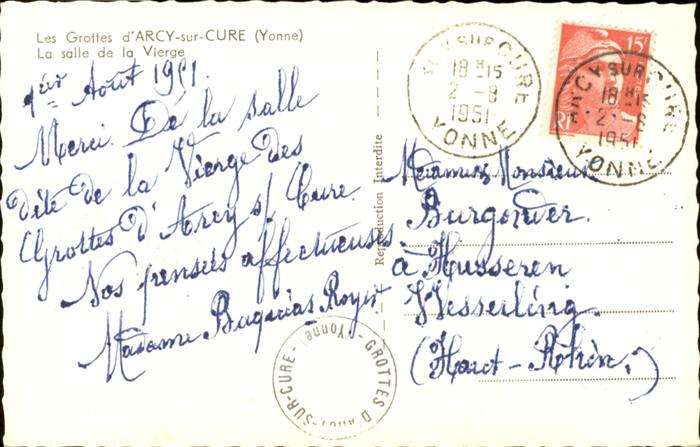 Les Grottes d'ARCY-sur-CURE (Yonne)
La salle de la Vierge
1er Août 1951.
Merci. De la salle
dite de la Vierge des
Grottes d'Arcy s/ Cure.
Nos pensées affectueuses
Madame Royer
Reproduction Interdite
ARCY SUR CURE
18 H 15
2 - 8
1951
YONNE
15F
RF
ARCY SUR CURE
18 H 15
2 - 8
1951
YONNE
Monsieur
à Husseren
Wesserling.
(Haut-Rhin.)
GROTTES D'ARCY-SUR-CURE - (Yonne) -